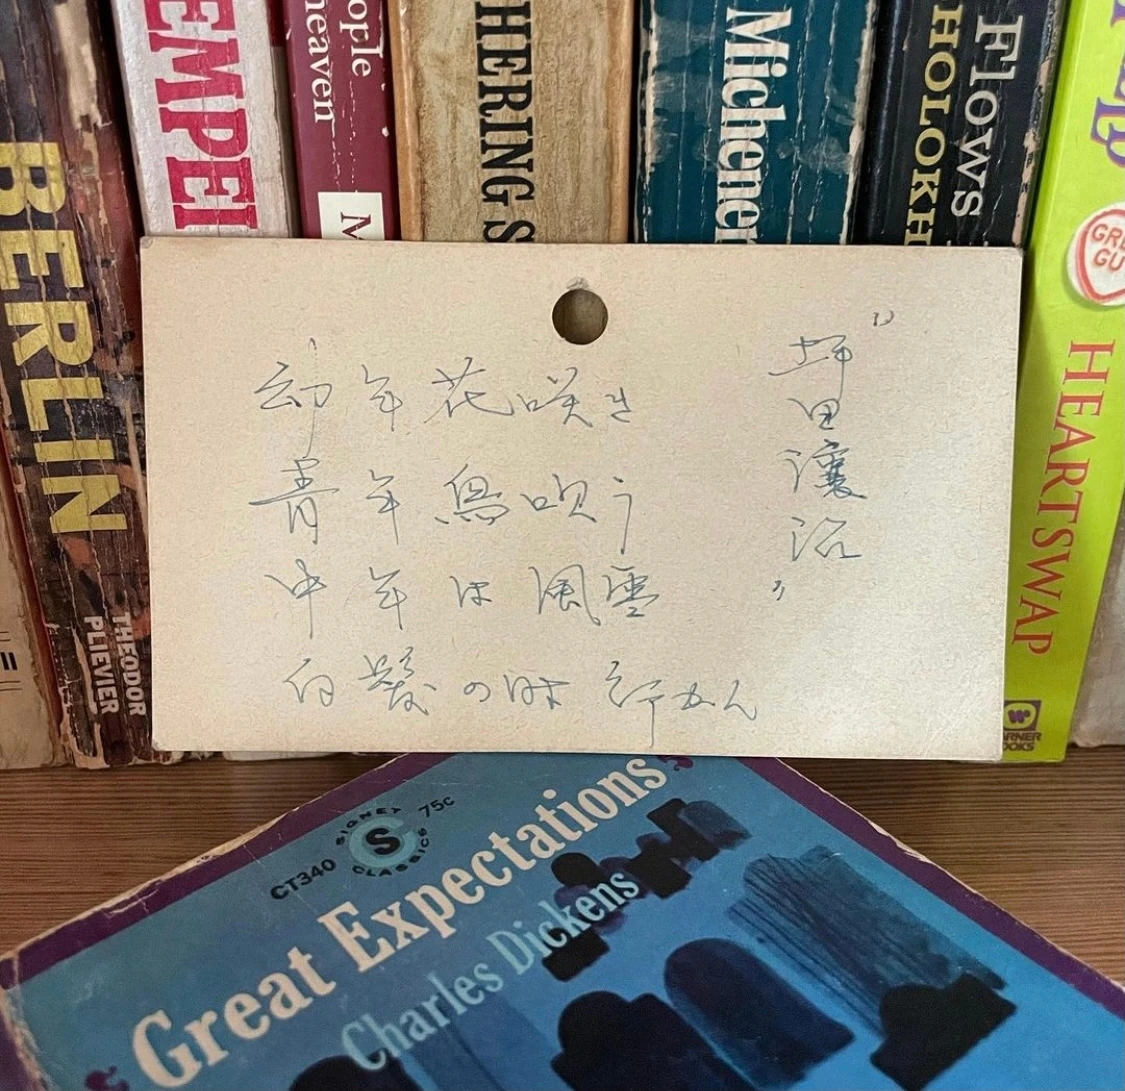 BERLIN
THEODOR
PLIEVIER
II
EMPE
ople
heaven
M
HERING S
Michener
Flows
HOLOKH
GRE
GU
HEARTSWAP
RNER
OKS
坪田讓治
幼年花咲き
青年鳥唄う
中年は風雲
白髪の時
CT340
SIGNET CLASSICS
75c
Great Expectations
Charles Dickens